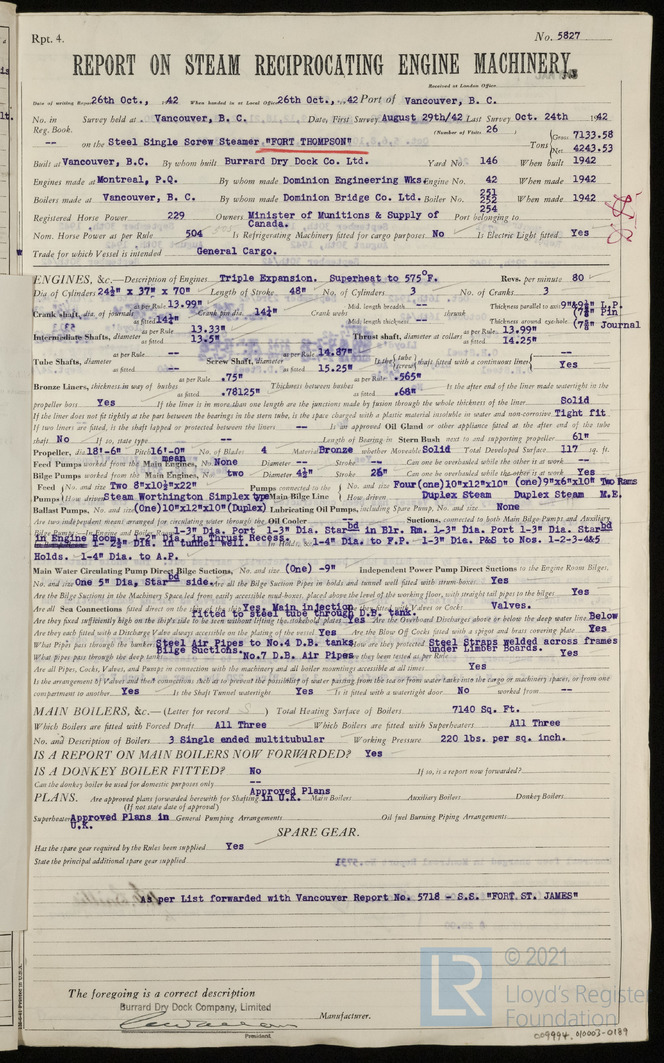 Rpt. 4.
No. 5827
REPORT ON STEAM RECIPROCATING ENGINE MACHINERY.
Received at London Office
Date of writing Report 26th Oct., 1942 When handed in at Local Office 26th Oct., 1942 Port of Vancouver, B. C.
No. in Survey held at Vancouver, B. C. Date, First Survey August 29th/42 Last Survey Oct. 24th 1942
Reg. Book. (Number of Visits 26
-- on the Steel Single Screw Steamer "FORT THOMPSON" Tons Gross 7133.58
Net 4243.53
Built at Vancouver, B.C. By whom built Burrard Dry Dock Co. Ltd. Yard No. 146 When built 1942
Engines made at Montreal, P.Q. By whom made Dominion Engineering Wks. Engine No. 42 When made 1942
Boilers made at Vancouver, B.C. By whom made Dominion Bridge Co. Ltd. Boiler No. 251 252 254 When made 1942
Registered Horse Power 229 Owners Minister of Munitions & Supply of Canada. Port belonging to
Nom. Horse Power as per Rule 504 Is Refrigerating Machinery fitted for cargo purposes No Is Electric Light fitted Yes
Trade for which Vessel is intended General Cargo.
ENGINES, &c.—Description of Engines Triple Expansion. Superheat to 575°F. Revs. per minute 80
Dia of Cylinders 24½" x 37" x 70" Length of Stroke 48" No. of Cylinders 3 No. of Cranks 3
Crank shaft, dia. of journals as per Rule 13.99" as fitted 14¼" Crank pin dia. 14¼" Crank webs Mid. length breadth -- Mid. length thickness -- shrunk Thickness parallel to axis 9"&9½" L.P. Thickness around eye-hole (7⅞" Pin (7⅞" Journal
Intermediate Shafts, diameter as per Rule 13.33" as fitted 13.5" Thrust shaft, diameter at collars as per Rule 13.99" as fitted 14.25"
Tube Shafts, diameter as per Rule -- as fitted -- Screw Shaft, diameter as per Rule 14.87" as fitted 15.25" Is the tube screw shaft fitted with a continuous liner -- Yes
Bronze Liners, thickness in way of bushes as per Rule .75" as fitted .78125" Thickness between bushes as per Rule .565" as fitted .68" Is the after end of the liner made watertight in the
propeller boss Yes If the liner is in more than one length are the junctions made by fusion through the whole thickness of the liner Solid
If the liner does not fit tightly at the part between the bearings in the stern tube, is the space charged with a plastic material insoluble in water and non-corrosive Tight fit
If two liners are fitted, is the shaft lapped or protected between the liners -- Is an approved Oil Gland or other appliance fitted at the after end of the tube
shaft No If so, state type -- Length of Bearing in Stern Bush next to and supporting propeller 61"
Propeller, dia 18'-6" Pitch 16'-0" mean No. of Blades 4 Material Bronze whether Moveable Solid Total Developed Surface 117 sq. ft.
Feed Pumps worked from the Main Engines, No. None Diameter -- Stroke -- Can one be overhauled while the other is at work --
Bilge Pumps worked from the Main Engines, No. two Diameter 4½" Stroke 26" Can one be overhauled while the other is at work Yes
Feed Pumps No. and size Two 8"x10½"x22" How driven Steam Worthington Simplex type Pumps connected to the Main Bilge Line No. and size Four(one)10"x12"x10" (one)9"x6"x10" Two Rams How driven Duplex Steam Duplex Steam M.E.
Ballast Pumps, No. and size (One)10"x12"x10"(Duplex) Lubricating Oil Pumps, including Spare Pump, No. and size None
Are two independent means arranged for circulating water through the Oil Cooler -- Suctions, connected to both Main Bilge Pumps and Auxiliary
Bilge Pumps
in Engine Room 1-3" Dia. Port 1-3" Dia. Starbd in Blr. Rm. 1-3" Dia. Port 1-3" Dia. Starbd
1- 2½" Dia. in tunnel well. in Thrust Recess. In Holds, &c. 1-4" Dia. to F.P. 1-3" Dia. P&S to Nos. 1-2-3-4&5
Holds. 1-4" Dia. to A.P.
Main Water Circulating Pump Direct Bilge Suctions, No. and size (One) -9" Independent Power Pump Direct Suctions to the Engine Room Bilges,
No. and size One 5" Dia, Starbd side. Are all the Bilge Suction Pipes in holds and tunnel well fitted with strum-boxes Yes
Are the Bilge Suctions in the Machinery Space led from easily accessible mud-boxes, placed above the level of the working floor, with straight tail pipes to the bilges Yes
Are all Sea Connections fitted direct on the skin of the ship Yes, Main injection fitted to steel tube through D.B. tank. Are they fitted with Valves or Cocks Valves.
Are they fixed sufficiently high on the ship's side to be seen without lifting the stokehold plates Yes Are the Overboard Discharges above or below the deep water line Below
Are they each fitted with a Discharge Valve always accessible on the plating of the vessel Yes Are the Blow Off Cocks fitted with a spigot and brass covering plate Yes
What Pipes pass through the bunkers Steel Air Pipes to No.4 D.B. tanks, Bilge Suctions. How are they protected Steel Straps welded across frames under Limber Boards.
What pipes pass through the deep tanks No.7 D.B. Air Pipes Have they been tested as per Rule Yes
Are all Pipes, Cocks, Valves, and Pumps in connection with the machinery and all boiler mountings accessible at all times Yes
Is the arrangement of Valves and their connections such as to prevent the possibility of water passing from the sea or from water tanks into the cargo or machinery spaces, or from one
compartment to another Yes Is the Shaft Tunnel watertight Yes Is it fitted with a watertight door No worked from --
MAIN BOILERS, &c.—(Letter for record S ) Total Heating Surface of Boilers 7140 Sq. Ft.
Which Boilers are fitted with Forced Draft All Three Which Boilers are fitted with Superheaters All Three
No. and Description of Boilers 3 Single ended multitubular Working Pressure 220 lbs. per sq. inch.
IS A REPORT ON MAIN BOILERS NOW FORWARDED? Yes
IS A DONKEY BOILER FITTED? No If so, is a report now forwarded?
Can the donkey boiler be used for domestic purposes only --
PLANS. Are approved plans forwarded herewith for Shafting Approved Plans in U.K. Main Boilers Auxiliary Boilers Donkey Boilers
(If not state date of approval)
Superheaters Approved Plans in U.K. General Pumping Arrangements Oil fuel Burning Piping Arrangements
SPARE GEAR.
Has the spare gear required by the Rules been supplied Yes
State the principal additional spare gear supplied
As per List forwarded with Vancouver Report No. 5718 - S.S. "FORT ST. JAMES"
The foregoing is a correct description
Burrard Dry Dock Company, Limited
Manufacturer.
President.
© 2021
LR
Lloyd's Register
Foundation
009994-010003-0189